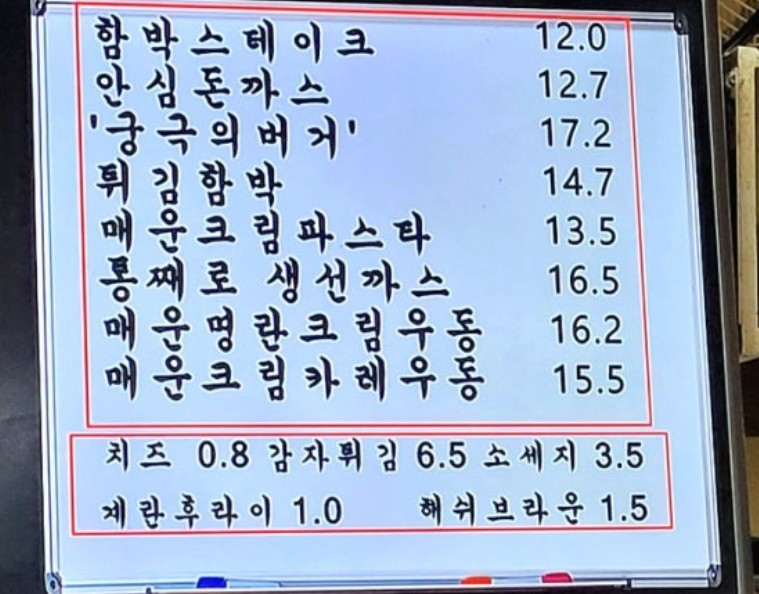 함박스테이크 12.0
안심돈까스 12.7
'궁극의버거' 17.2
튀김함박 14.7
매운크림파스타 13.5
통째로 생선까스 16.5
매운명란크림우동 16.2
매운크림카레우동 15.5
치즈 0.8 감자튀김 6.5 소세지 3.5
계란후라이 1.0 해쉬브라운 1.5